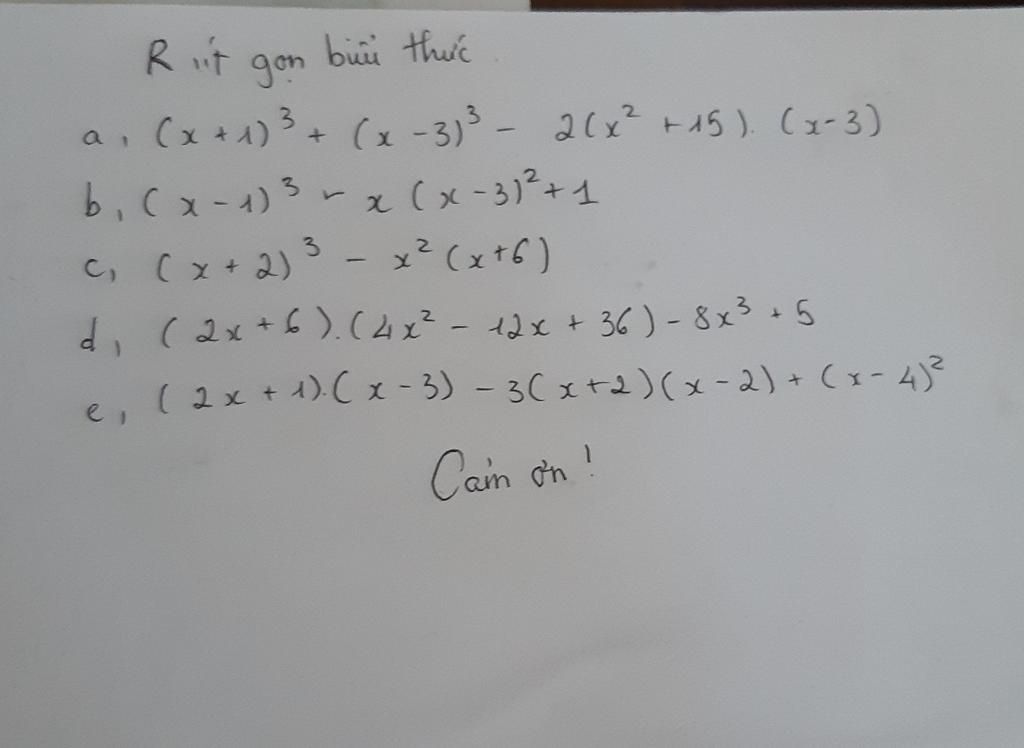 Rút gọn biểu thức
a, (x+1)³ + (x-3)³ - 2(x² + 15). (x-3)
b, (x-1)³ - x(x-3)² + 1
c, (x+2)³ - x²(x+6)
d, (2x+6).(4x² - 12x + 36) - 8x³ + 5
e, (2x+1).(x-3) - 3(x+2)(x-2) + (x-4)²
Cảm ơn!